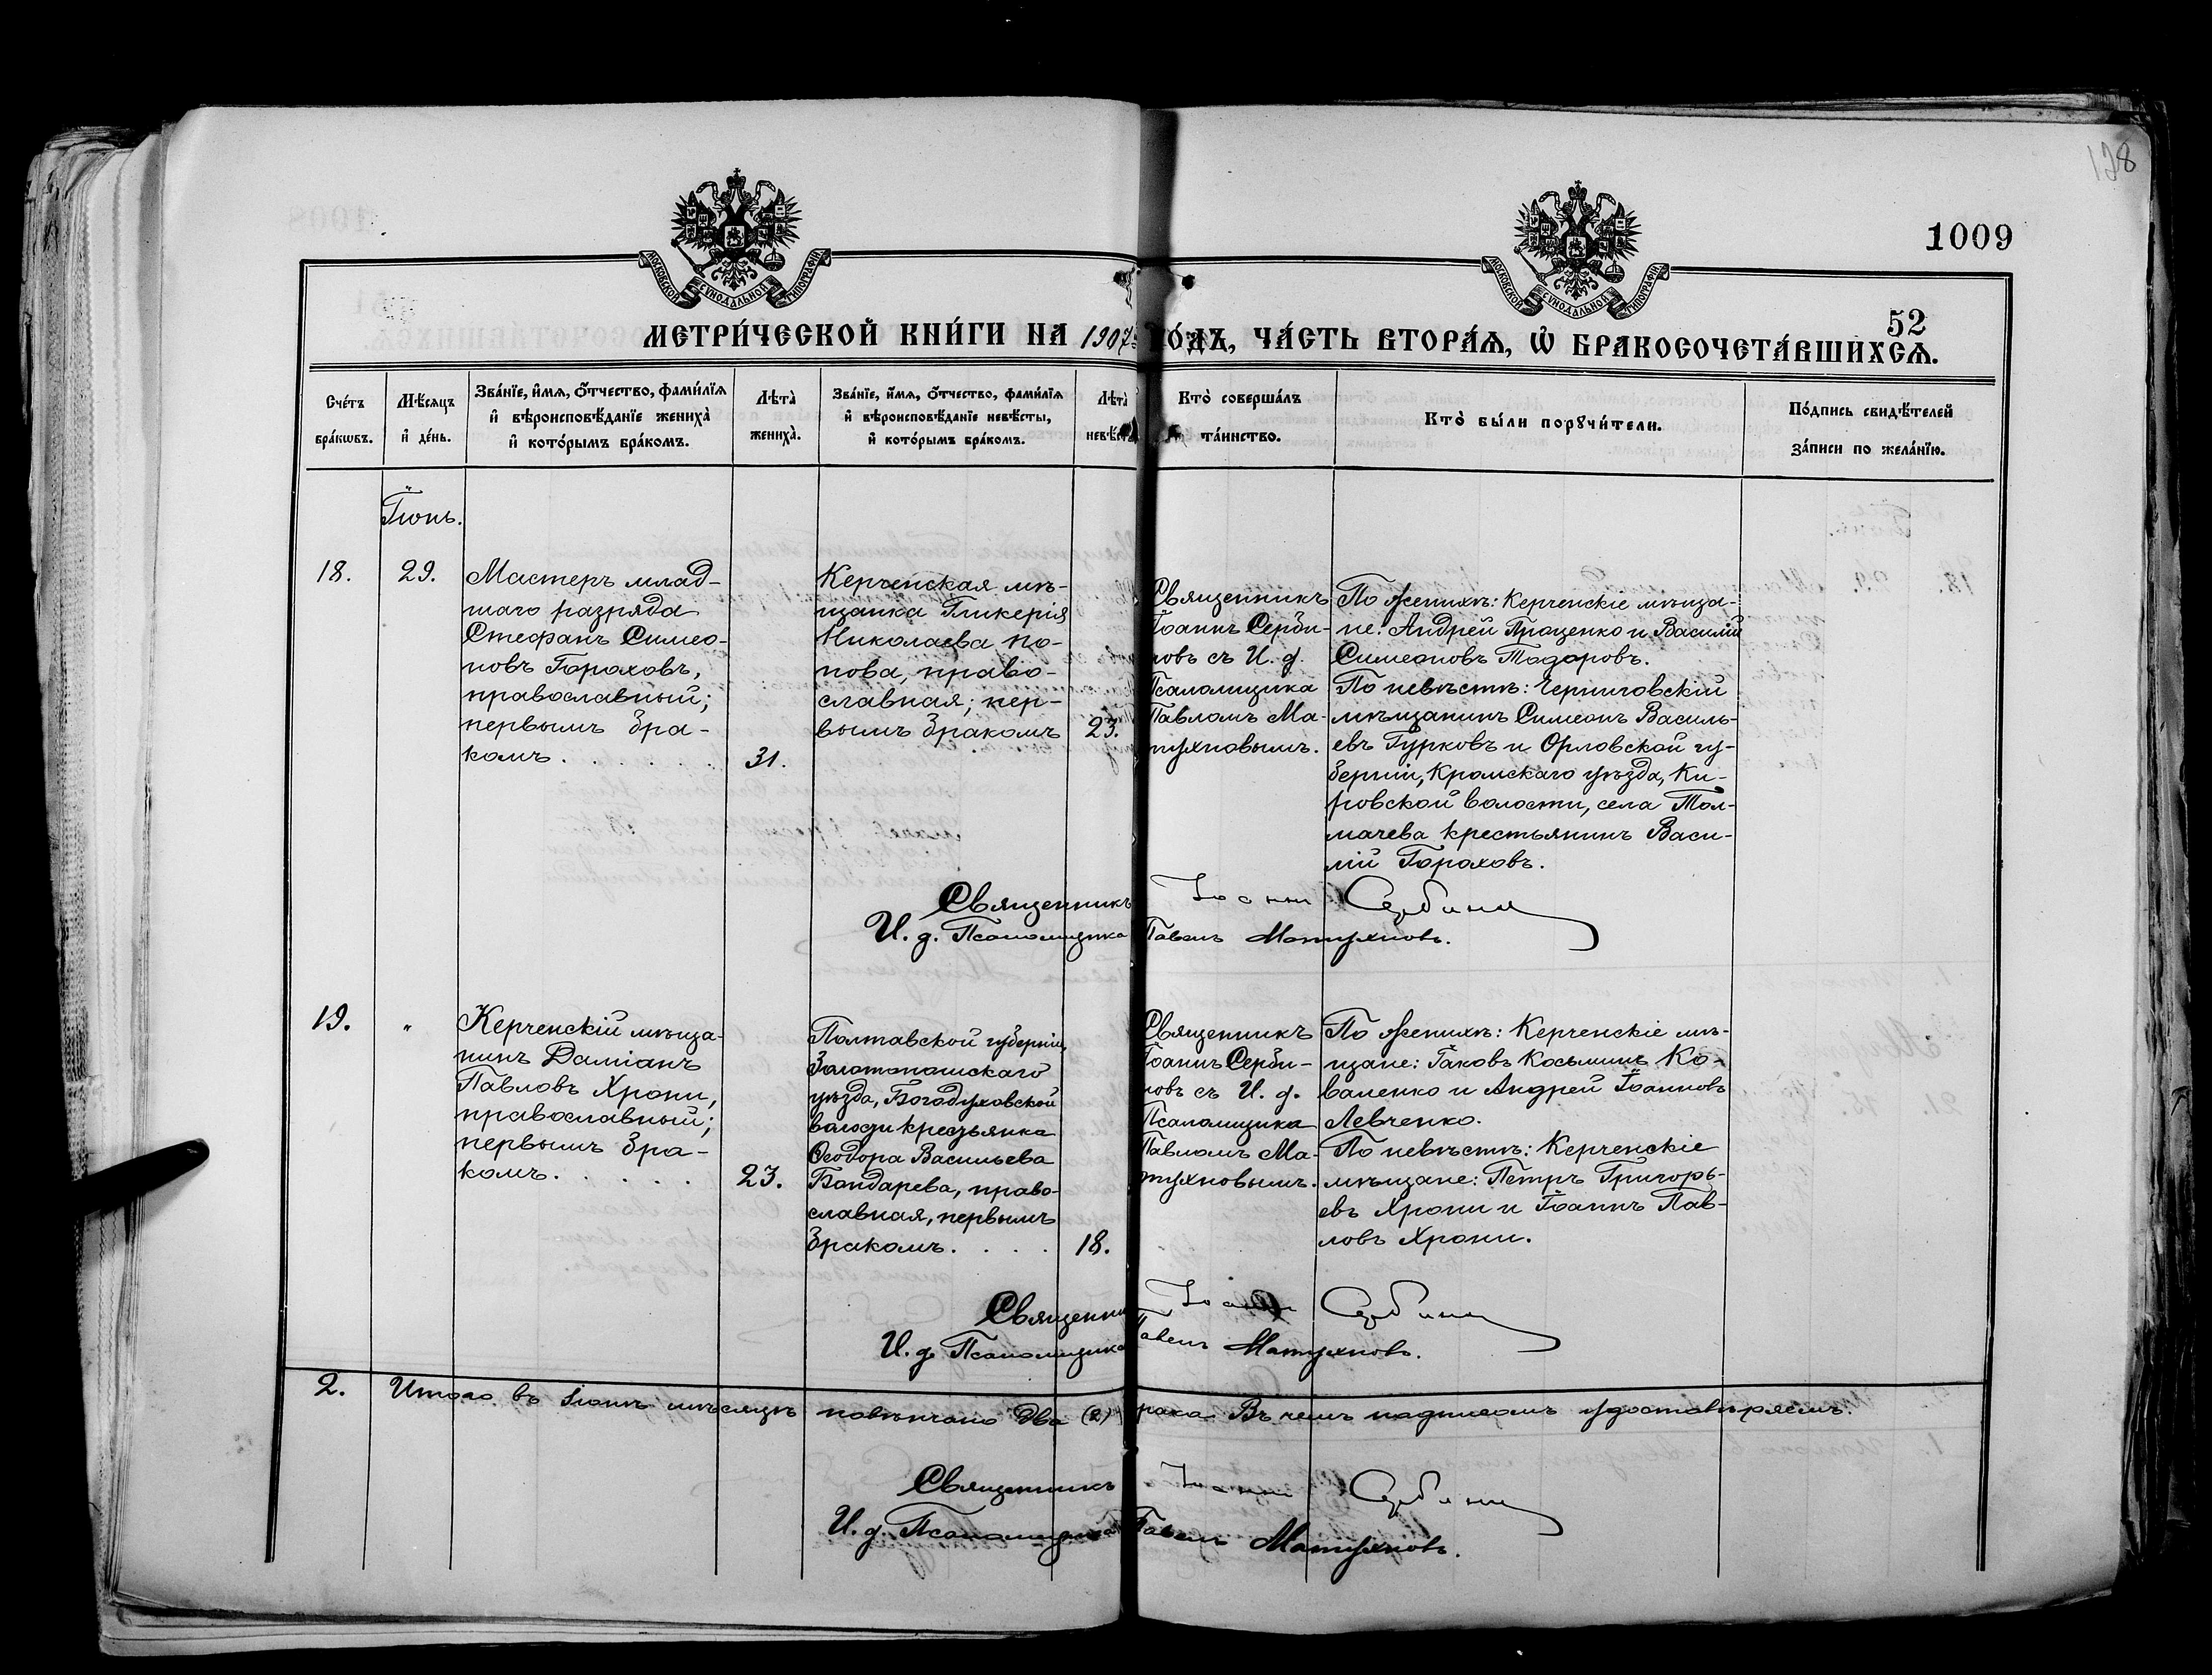 128
1009
52
МОСКОВСКОЙ СѴНОДАЛЬНОЙ ТИПОГРАФІИ
МОСКОВСКОЙ СѴНОДАЛЬНОЙ ТИПОГРАФІИ
МЕТРИ́ЧЕСКОЙ КНИ́ГИ НА 1907 ГО́ДЪ, ЧА́СТЬ ВТОРА́Ѧ, Ѡ҆ БРАКОСОЧЕТА́ВШИХСѦ.
Сче́тъ
бра́кѡвъ.
Мѣ́сѧцъ
и҆ де́нь.
Зва́нїе, и҆́мѧ, ѻ҆́тчество, фами́лїѧ
и҆ вѣроисповѣ́данїе жениха̀
и҆ кото́рымъ бра́комъ.
Лѣта̀
жениха̀.
Зва́нїе, и҆́мѧ, ѻ҆́тчество, фами́лїѧ
и҆ вѣроисповѣ́данїе невѣ́сты,
и҆ кото́рымъ бра́комъ.
Лѣта̀
невѣ́сты
Кто̀ соверша́лъ
та́инство.
Кто̀ бы́ли порꙋчи́тели.
По́дпись свидѣ́телей
за́писи по жела́нїю.
Іюнь.
18.
29.
Мастеръ млад-
шаго разряда
Стефанъ Симео-
новъ Гороховъ,
православный;
первымъ бра-
комъ . . . . . .
31.
Керченская мѣ-
щанка Гликерія
Николаева По-
пова, право-
славная; пер-
вымъ бракомъ
23.
Священникъ
Іоаннъ Серби-
новъ съ И. д.
Псаломщика
Павломъ Ма-
тухновымъ.
По женихѣ: Керченскіе мѣща-
не: Андрей Проценко и Василій
Симеоновъ Тодоровъ.
По невѣстѣ: Черниговскій
мѣщанинъ Симеонъ Василь-
евъ Гурковъ и Орловской гу-
берніи, Кромскаго уѣзда, Ки-
ровской волости, села Тол-
мачева крестьянинъ Васи-
лій Гороховъ.
Священникъ Іоаннъ Сербинъ
И. д. Псаломщика Павелъ Матухновъ.
19.
"
Керченскій мѣща-
нинъ Даміанъ
Павловъ Хрони,
православный;
первымъ бра-
комъ. . . . . .
23.
Полтавской губерніи,
Золотоношскаго
уѣзда, Богодуховской
волости крестьянка
Ѳеодора Васильева
Бондарева, право-
славная, первымъ
бракомъ. . . . .
18.
Священникъ
Іоаннъ Серби-
новъ съ И. д.
Псаломщика
Павломъ Ма-
тухновымъ.
По женихѣ: Керченскіе мѣ-
щане: Іаковъ Косьминъ Ко-
валенко и Андрей Іоанновъ
Левченко.
По невѣстѣ: Керченскіе
мѣщане: Петръ Григорь-
евъ Хрони и Іоаннъ Пав-
ловъ Хрони.
Священникъ Іоаннъ Сербинъ
И. д. Псаломщика Павелъ Матухновъ.
2. Итого въ Іюнѣ мѣсяцѣ повѣнчано два (2) брака Въ чемъ подписомъ удостовѣряемъ.
Священникъ Іоаннъ Сербинъ
И. д. Псаломщика Павелъ Матухновъ.